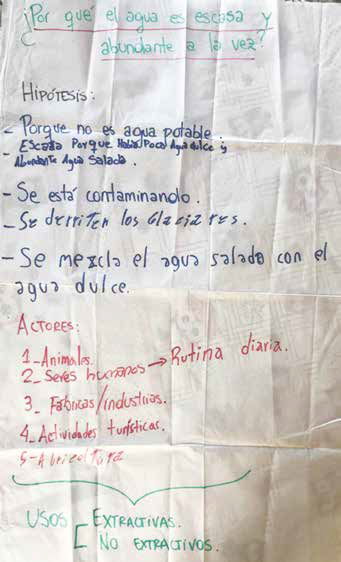 ¿Por qué el agua es escasa y
abundante a la vez?
HIPÓTESIS:
- Porque no es agua potable.
- Escasa Porque Habia Poca Agua dulce y
Abundante Agua Salada.
- Se está contaminando.
- Se derriten los Glaciares.
- Se mezcla el agua salada con el
agua dulce.
ACTORES:
1_Animales.
2_ Seres humanos → Rutina diaria.
3_ Fábricas/industrias.
4_ Actividades turísticas.
5-Agricultura
USOS [ EXTRACTIVAS.
NO EXTRACTIVOS.